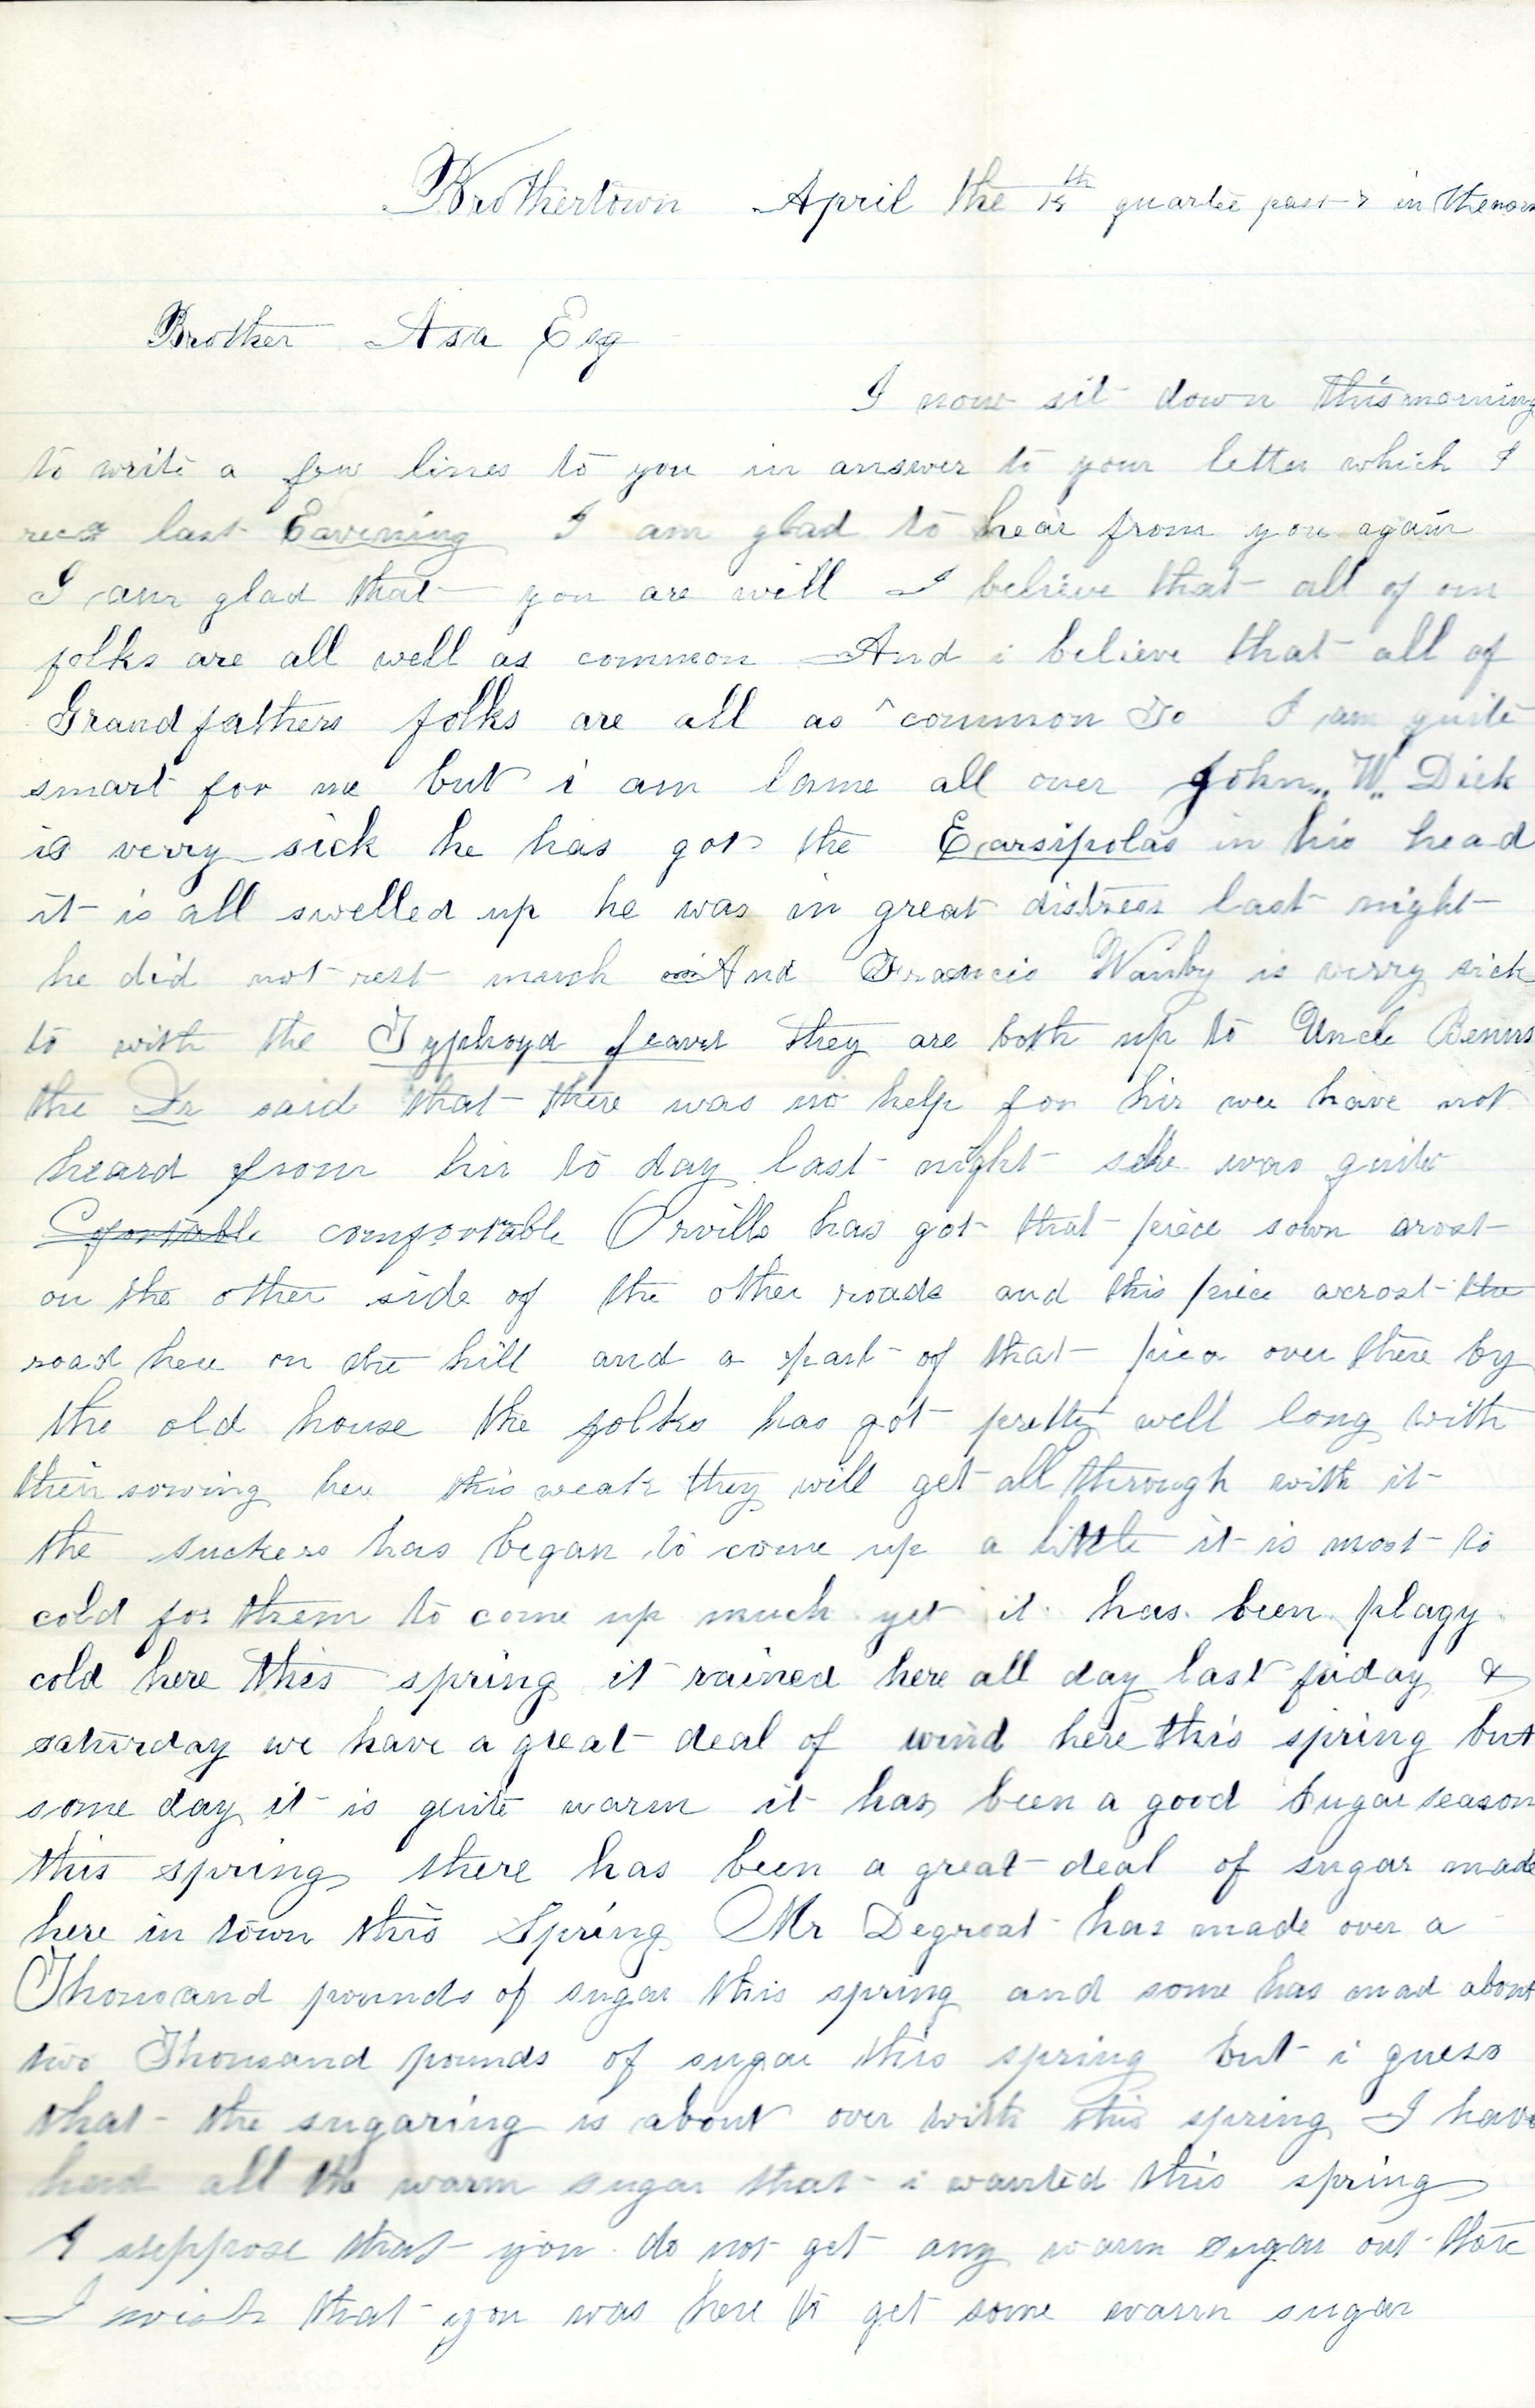 Brothertown April the 15th quarter past 7 in the
Brother Asa Esq
I now sit down this morning
to write a few lines to you in answer to your letter which I
last Eavening I am glad to hear from you again
I am glad that you are will I believe that all of our
folks are all well as common And i believe that all of
Grandfathers folks are all as ^ common To I am quite
smart for me but i am lame all over John,, W,, Dick
is verry sick he has got the Earsipolas in his head
it is all swelled up he was in great distress last night
he did not rest much And Francis Wauby is verry sick
to with the Typhoyd feaver they are both up to Uncle Benns
the Dr said that there was no help for hir wee have not
heard from hir to day last night she was quite
comfortable Orville has got that piece sown arost
on the other side of the other roads and this piece acrost the
road here on the hill and a part of that piece over there by
the old house the folks has got pretty well long with
their sowing here this weak they will get all through with it
the suckers has began to come up a little it is most to
cold for them to come up much yet it has been plagy
cold here this spring it rained here all day last friday &
saturday we have a great deal of wind here this spring but
some day it is quite warm it has been a good Sugar season
this spring there has been a great deal of sugar made
here in town this Spring Mr Degroat has made over a
Thousand pounds of sugar this spring and some has mad about
two Thousand pounds of sugar this spring but i guess
that the sugaring is about over with this spring I have
had all the warm sugar that i wanted this spring
I suppose that you do not get any warm sugar out there
I wish that you was here to get some warm sugar